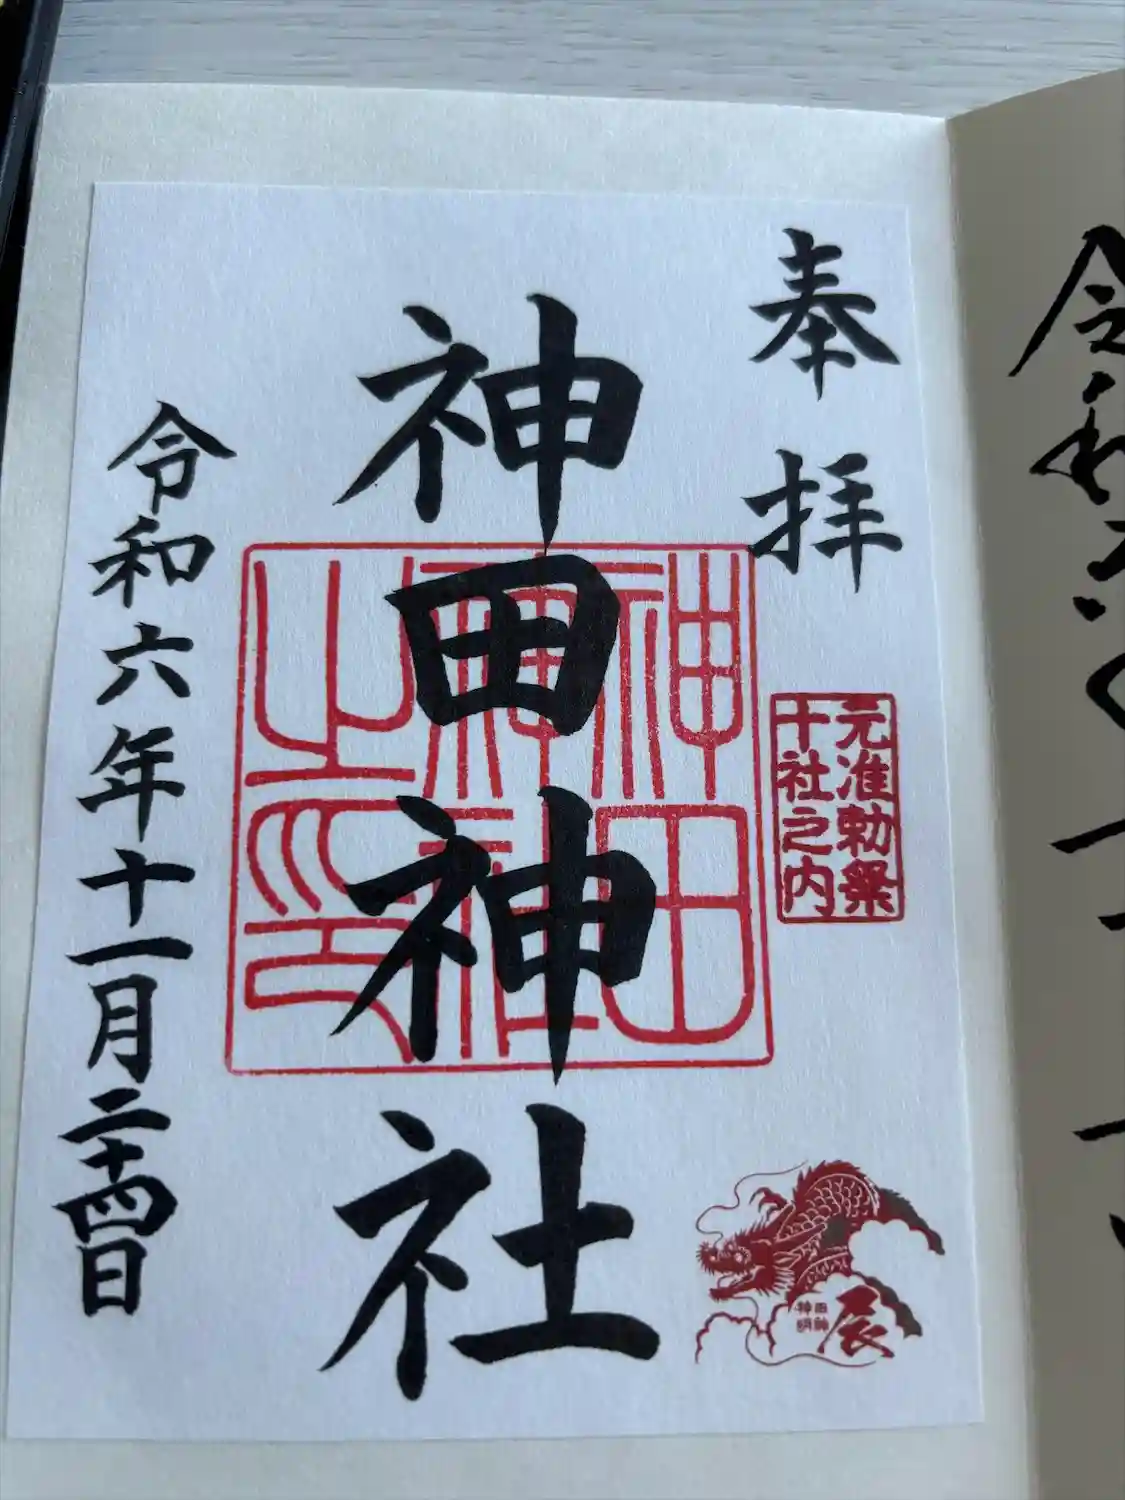 奉拝
元准勅祭
十社之内
神田神社
神田
神社
之印
令和六年十一月二十四日
辰
田神
神明
令和